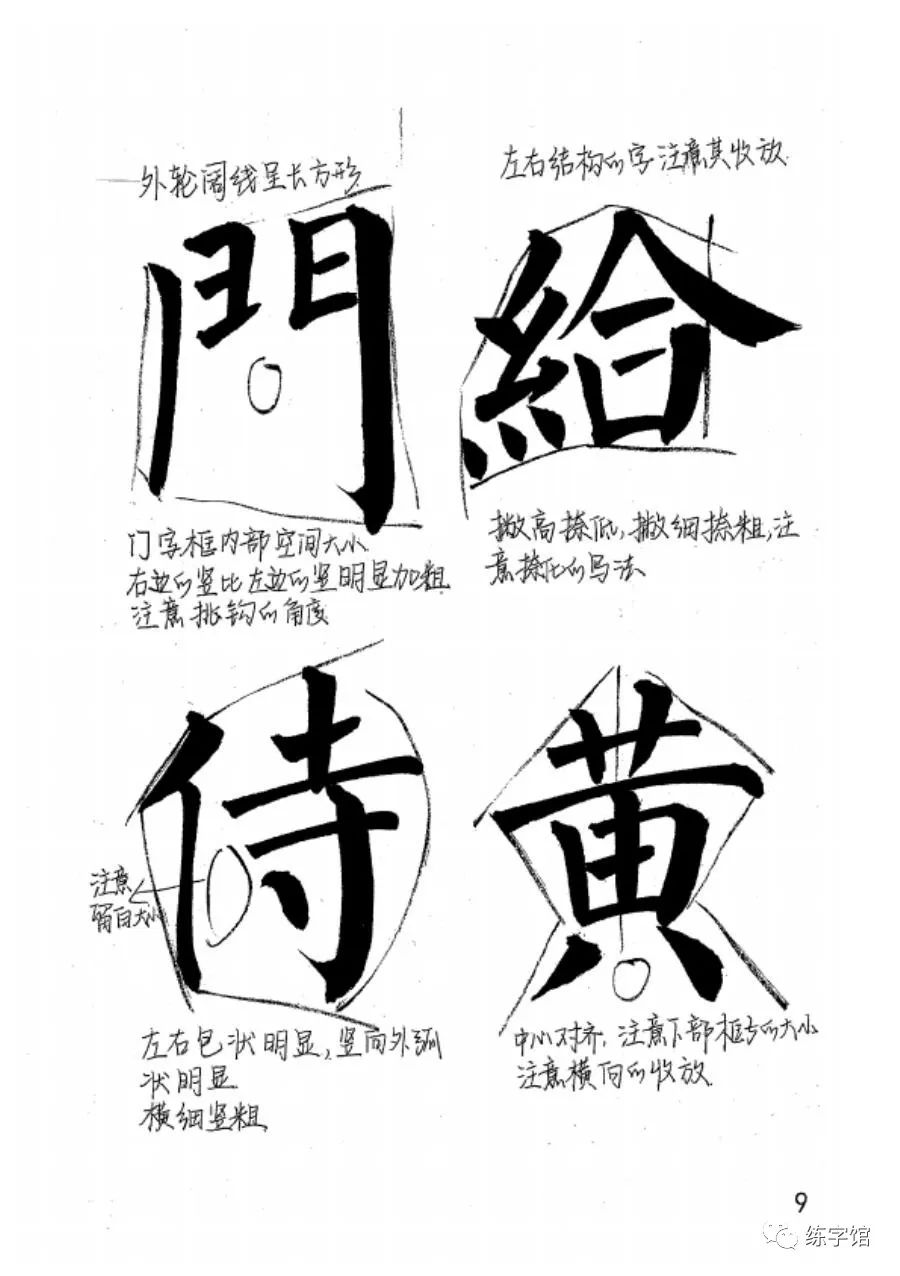 外轮阔线呈长方形
門
门字框内部空间大小
右边的竖比左边的竖明显加粗
注意挑钩的角度
左右结构的字注意其收放
給
撇高捺低，撇细捺粗，注
意捺化的写法
侍
注意
留白大小
左右包状明显，竖向外弧
状明显
横细竖粗
黄
中心对齐，注意下部框与的大小
注意横向的收放
9
练字馆